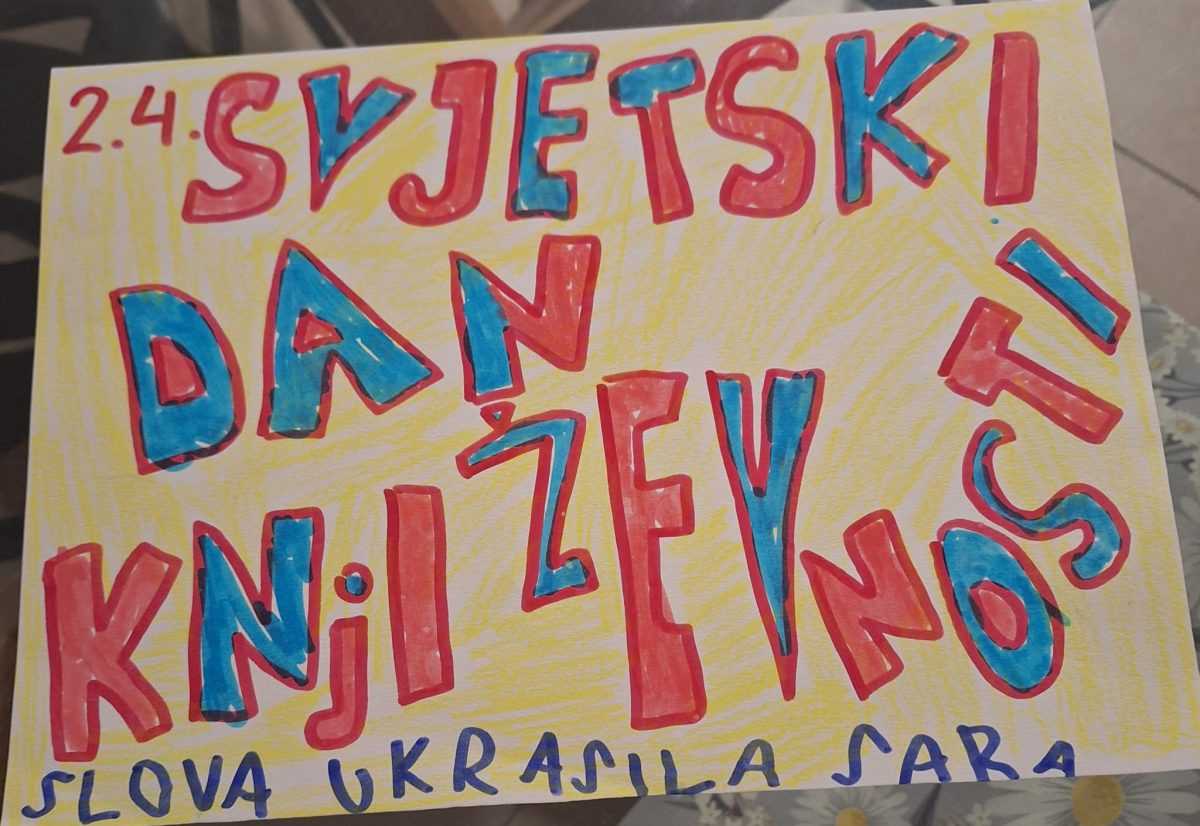 2.4. SVJETSKI
DAN
KNjIŽEVNOSTI
SLOVA UKRASILA SARA